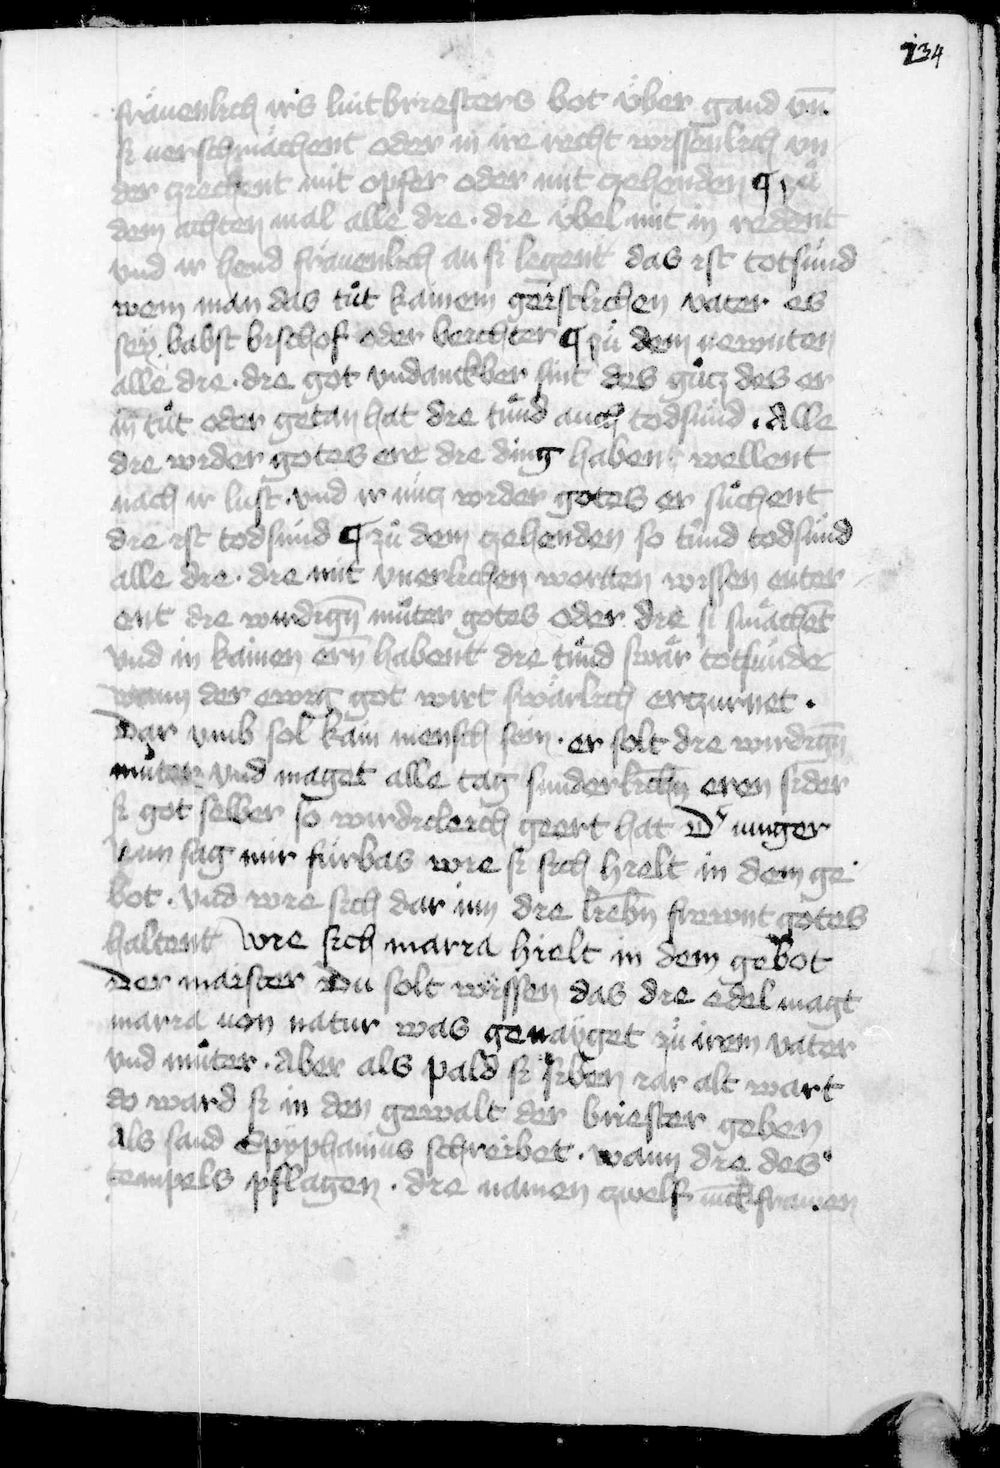 134
fräuenlich irs lüitbriesters bot über gand vn̄
si uerschmächent oder in ire recht wissenlich vn
der ziechent mit opfer oder mit zehenden ¶ zů
dem achten mal alle die · die übel mit in redent
vnd ir hend fräuenlich an si legent das ist totsünd
wem man das tůt kainem geistlichen vater es
seÿ babst bischof oder beichter ¶ zů dem newnten
alle die · die got vndanckber sint des gůcz des er
in̄ tůt oder getan hat die tůnd auch todsünd · Alle
die wider gotes ere die ding habent wellent
nach ir lust · vnd ir nücz wider gotes er sůchent
die ist todsünd ¶ zů dem zehenden so tůnd todsünd
alle die · die mit vnerlichen wortten wissen enter
ent die wirdign̄ můter gotes oder die si smächet̄
vnd in kainen ern̄ habent die tůnd swär totsünde
wann der ewig got wirt swärlich erzurnet ·
Dar vmb sol kain mensch sein · er solt die wirdign̄
můter vnd maget alle tag sunderlichn̄ eren sider
si got selber so wirdicleich geert hat D' iunger
Nun sag mir fürbas wie si sich hielt in dem ge
bot · vnd wie sich dar inn die liebn̄ frewnt gotes
haltent Wie sich maria hielt in dem gebot
Der maister Du solt wissen das die edel magt
maria uon natur was genäÿget zů irem vater
vnd můter · Aber als pald si siben iar alt wart
do ward si in den gewalt der briester geben
Als sand Epÿphanius schreibet · wann die des
tempels pflagen · die namen zwelf iunckfrawen